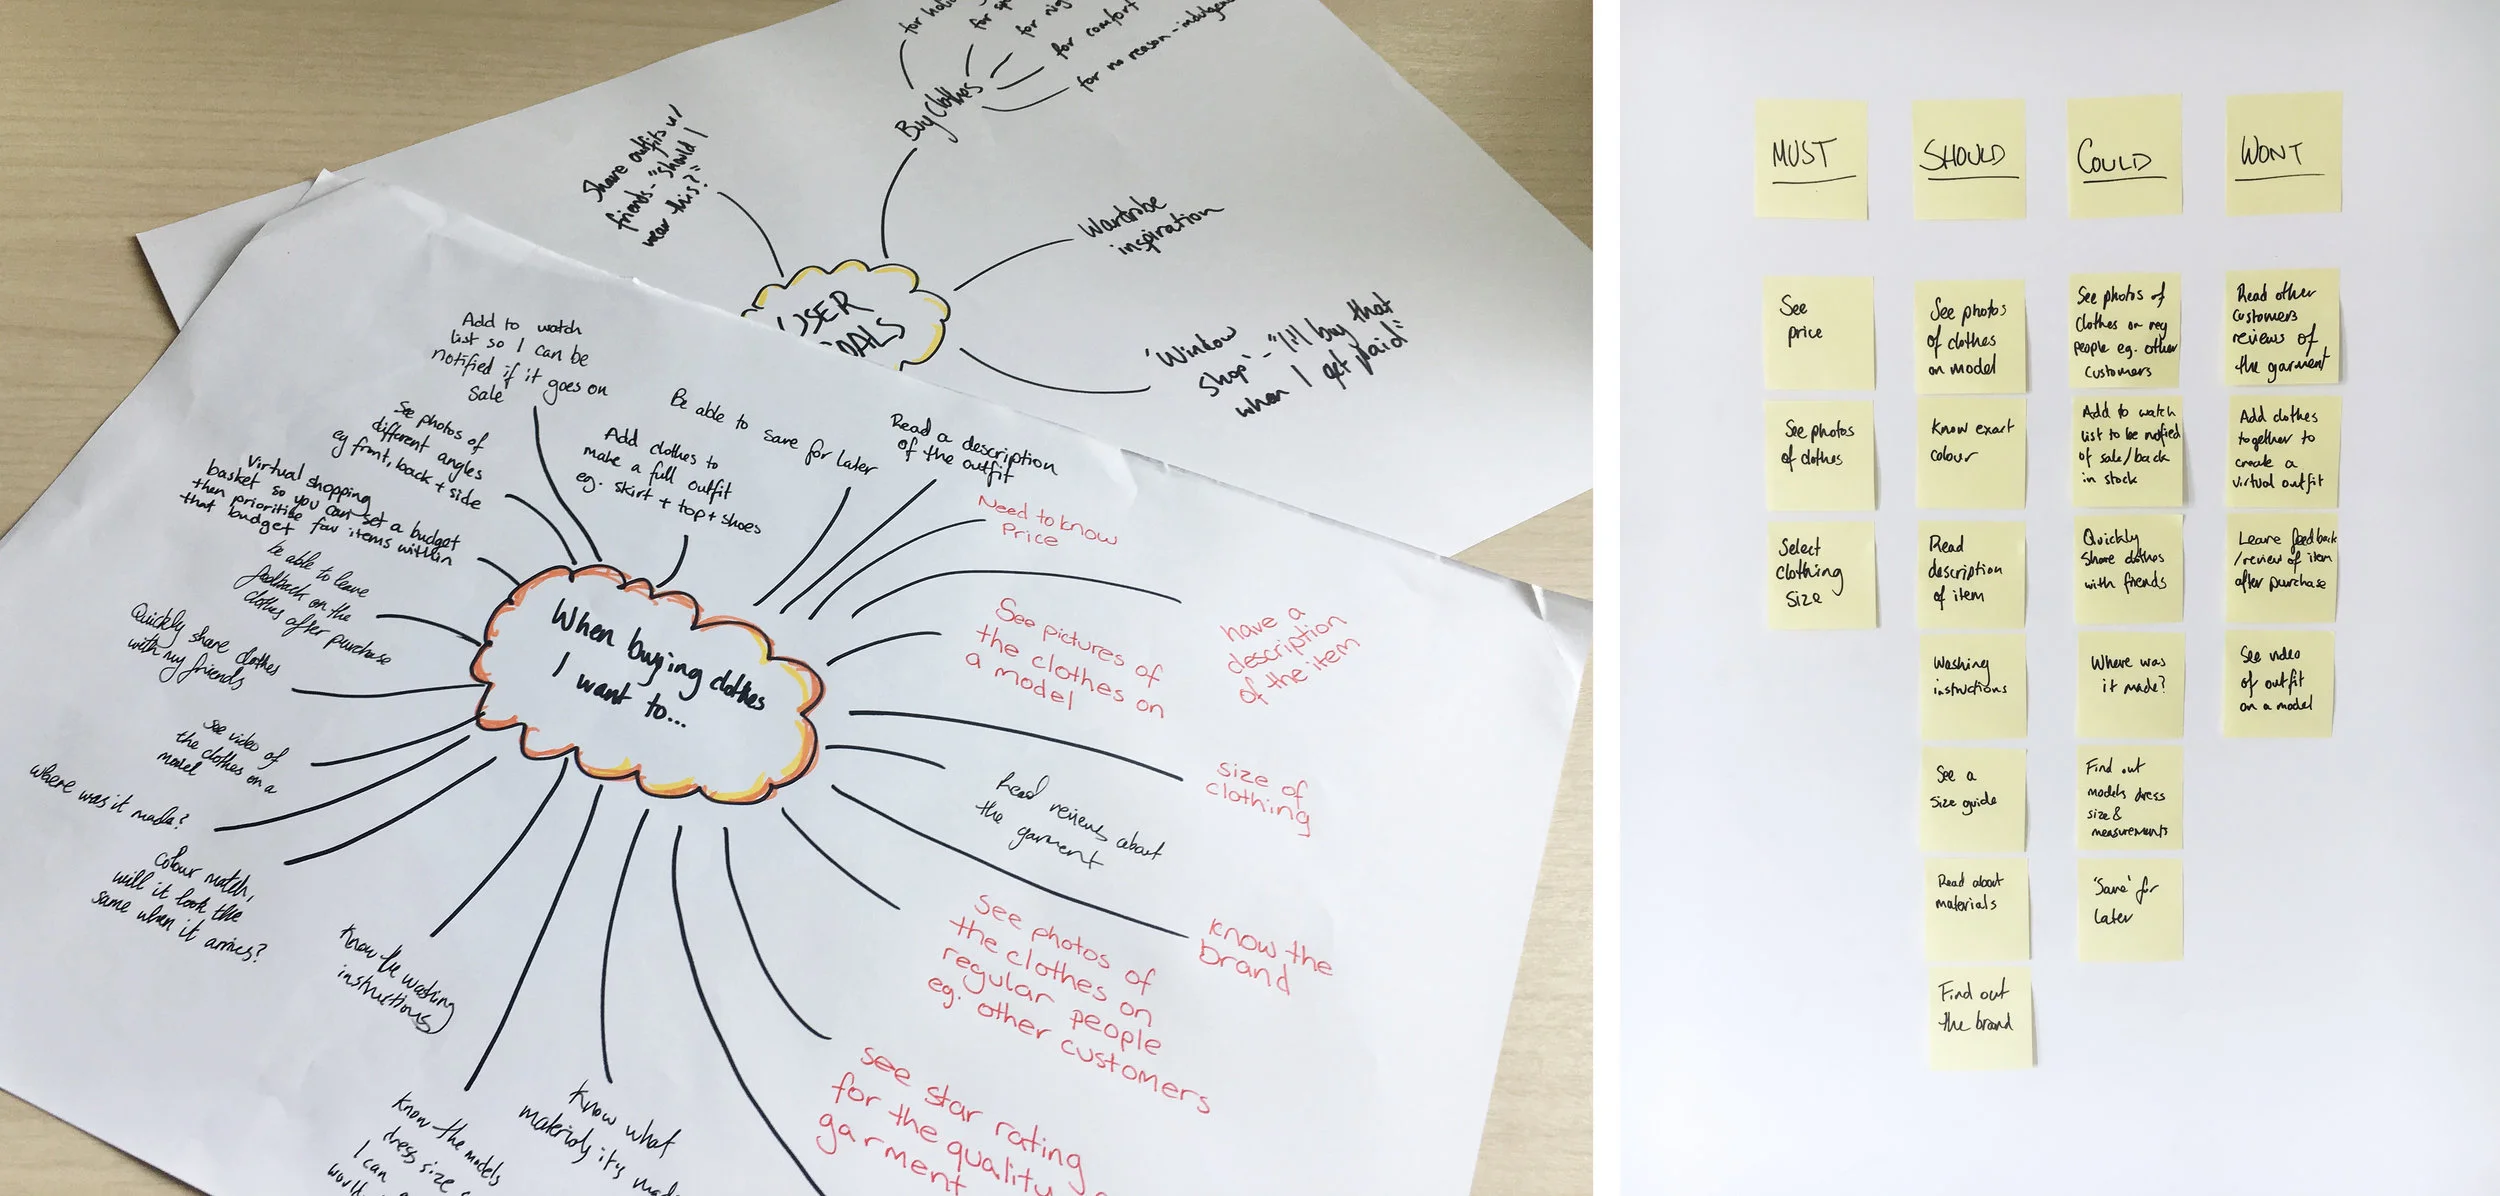 for
for
for comfort
for no reason - indulgence
Buy Clothes
Share outfits w/
friends - "should I
wear this?"
Wardrobe
inspiration
'Window
shop' - "I'll buy that
when I get paid"
USER
GOALS
Add to watch
list so I can be
notified if it goes on
sale
See photos of
different angles
eg front, back + side
Virtual shopping
basket so you can set a budget
then prioritise fav items within
that budget
be able to leave
feedback on the
clothes after purchase
Quickly share clothes
with my friends
See video of
the clothes on a
model
where was it made?
colour match,
will it look the
same when it arrives?
Know the washing
instructions
Know the models
dress size
I can
would
Know what
materials it's made
Add clothes to
make a full outfit
eg. skirt + top + shoes
Be able to save for later
Read a description
of the outfit
Need to know
Price
have a
description
of the item
See pictures of
the clothes on
a model
size of
clothing
Read reviews about
the garment
Know the
brand
See photos of
the clothes on
regular people
eg. other customers
See star rating
for the quality
garment
When buying clothes
I want to...
MUST
See
price
See photos
of clothes
Select
clothing
size
SHOULD
See photos
of clothes
on model
Know exact
colour
Read
description
of item
Washing
instructions
See a
size guide
Read about
materials
Find out
the brand
COULD
See photos of
clothes on reg
people eg. other
customers
Add to watch
list to be notified
of sale/back
in stock
Quickly
share clothes
with friends
Where was
it made?
Find out
models dress
size &
measurements
'Save' for
later
WONT
Read other
customers
reviews of
the garment
Add clothes
together to
create a
virtual outfit
Leave feedback
/review of item
after purchase
See video
of outfit
on a model